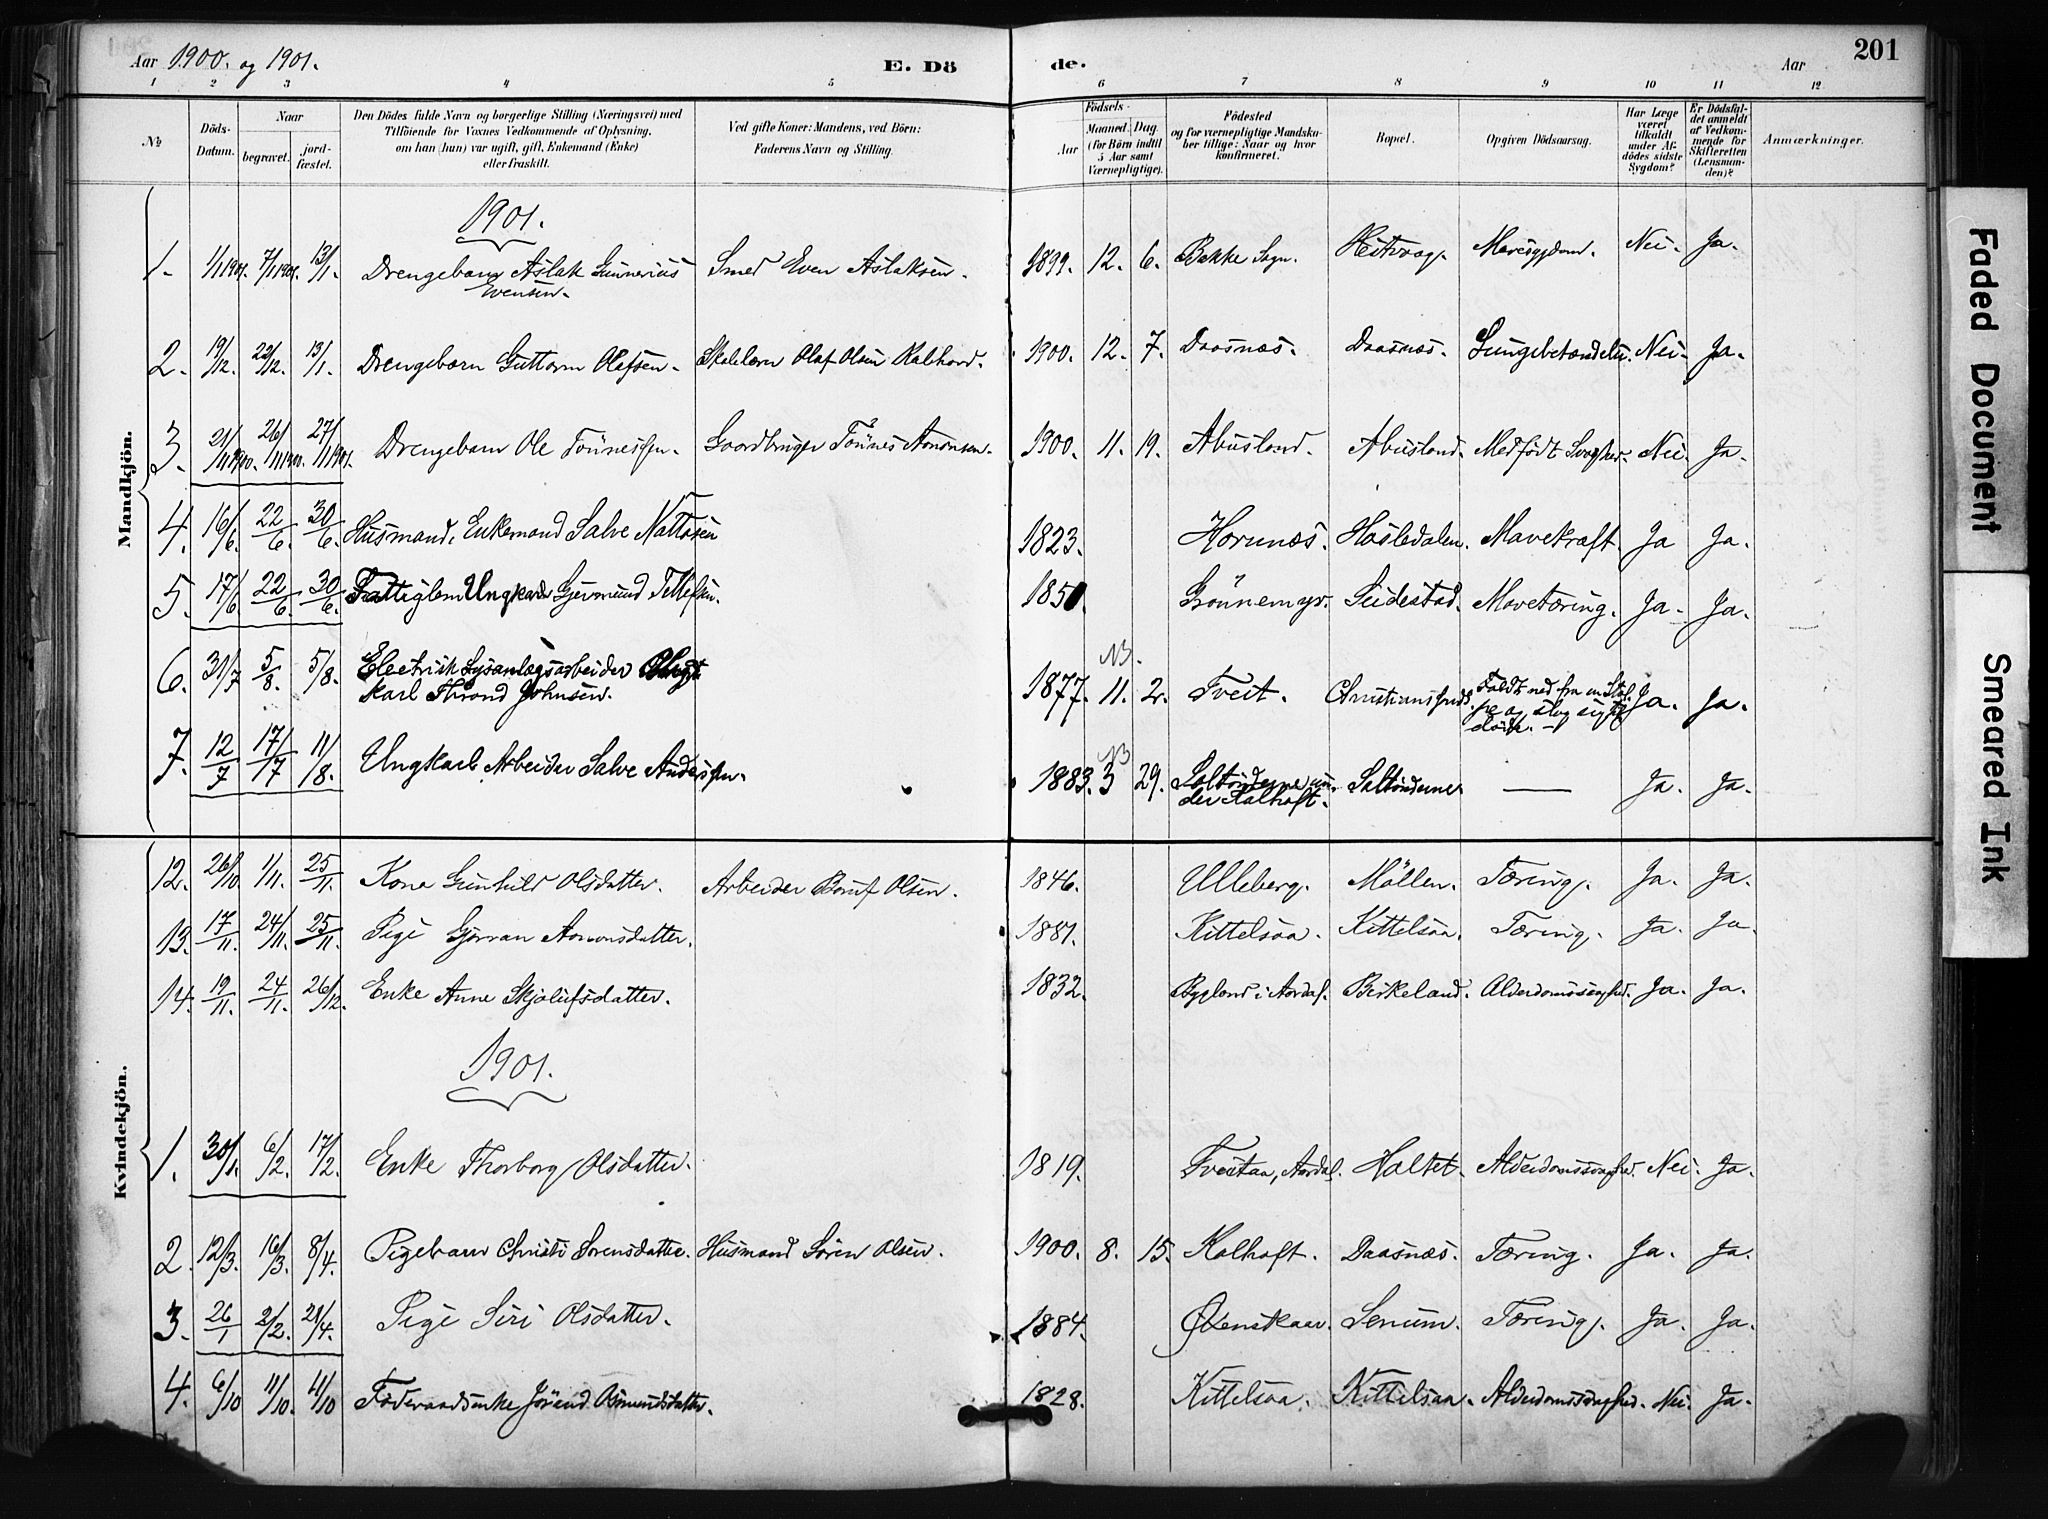 Aar 1900. og 1901.
E. Dö
de.
Aar
201
1 2 3 4 5 6 7 8 9 10 11 12
№
Döds-Datum.
Naar
begravet.
jord-fæstet.
Den Dödes fulde Navn og borgerlige Stilling (Næringsvei) med
Tilföiende for Voxnes Vedkommende af Oplysning,
om han (hun) var ugift, gift, Enkemand (Enke)
eller fraskilt.
Ved gifte Koner: Mandens, ved Börn:
Faderens Navn og Stilling.
Födsels-
Aar
Maaned. Dag.
(for Börn indtil
5 Aar samt
Værnepligtige).
Födested
og for værnepligtige Mandska-
ber tillige: Naar og hvor
konfirmeret.
Bopæl.
Opgiven Dödsaarsag.
Har Læge
været
tilkaldt
under Af-
dödes sidste
Sygdom?
Er Dödsfal-
det anmeldt
af Vedkom-
mende for
Skifteretten
(Lensman-
den)?
Anmærkninger.
Mandkjön.
1901.
1. 1/1 1901. 7/1 1901. 13/1. Drengebarn Aslak Gunnerius Smed Even Aslaksen. 1899. 12. 6. Bakke Sogn. Mavesygdom. Nei. Ja.
Evensen.
2. 19/12. 22/12. 13/1. Drengebarn Guttorm Olafsen. Olaf Olsen 1900. 12. 7. Daasnæs. Daasnæs. Lungebetændelse. Nei. Ja.
3. 21/11 1900. 26/11 1900. 27/1 1901. Drengebarn Ole Tönnessen. Gaardbruger Tönnes Aanonsen. 1900. 11. 19. Abusland. Abusland. Medfödt Svaghed. Nei. Ja.
4. 16/6. 22/6. 30/6. Husmand, Enkemand Salve 1823. Hornnæs. Hasledalen. Mavekræft. Ja Ja.
5. 17/6. 22/6. 30/6. Fattiglem Ungkarl Gjermund Tellefsen. 1850. Grönnemyr. Seidestad. Mavetæring. Ja. Ja.
6. 31/7 5/8. 5/8. Electrisk Lysanlægsarbeider
Karl Thrond Johnsen. NB. 1877. 11. 2. Tveit. Ja. Ja.
Faldt ned fra en Stol-
pe og slog sig til
döde.
7. 12/7 17/7 11/8. Ungkarl Arbeider Salve Anderssen. NB 1883. 3 29. Saltönderne un-
der Kalhoft. Saltönderne — Ja. Ja.
Kvindekjön.
12. 26/10. 1/11. 25/11. Kone Gunhild Olsdatter. Arbeider Olsen. 1846. Ulleberg. Möllen. Tæring. Ja. Ja.
13. 17/11. 24/11. 25/11. Pige Gjørran Aanonsdatter. 1881. Kittelsaa. Kittelsaa. Tæring. Ja. Ja.
14. 19/11. 24/11. 26/12. Enke Anne Skjølufsdatter. 1832. Bygland i Aardal. Birkeland. Alderdomssvaghed. Ja. Ja.
1901.
1. 30/1. 6/2. 17/2. Enke Thorborg Olsdatter. 1819. Tveitaa, Aardal. Holtet. Alderdomssvaghed. Nei. Ja.
2. 12/3. 16/3. 8/4. Pigebarn Christi Sorensdatter. Husmand Sören Olsen. 1900. 8. 15. Kalhoft. Daasnæs. Tæring. Ja. Ja.
3. 26/1 2/2. 21/4. Pige Siri Olsdatter. 1884. Senum. Tæring. Ja. Ja.
4. 6/10 11/10. 11/10 Föderaadsenke Jörend Omundsdatter. 1828. Kittelsaa. Kittelsaa. Alderdomssvaghed. Nei. Ja.
Faded Document
Smeared Ink